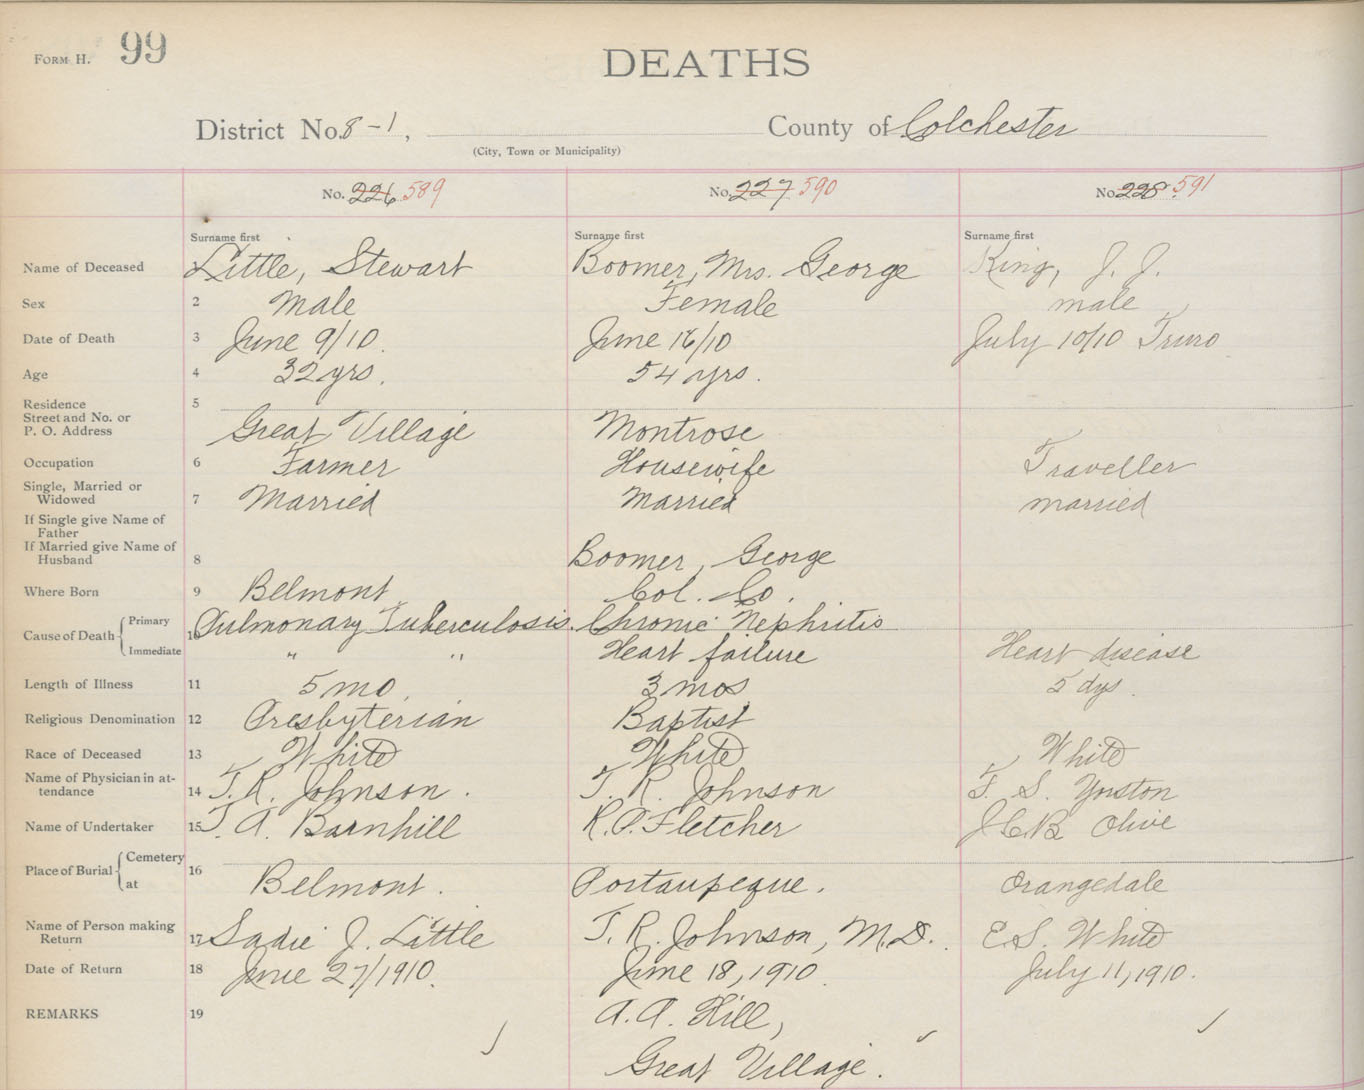 FORM H. 99
DEATHS
District No. 8-1, County of Colchester
(City, Town or Municipality)
No. 226 589 No. 227 590 No. 228. 591
Surname first Surname first Surname first
Name of Deceased Little, Stewart Boomer, Mrs. George King, J. J.
Sex 2 Male Female male
Date of Death 3 June 9/10. June 16/10 July 10/10 Truro
Age 4 32 yrs. 54 yrs.
Residence 5
Street and No. or
P. O. Address Great Village Montrose
Occupation 6 Farmer Housewife Traveller
Single, Married or
Widowed 7 Married Married married
If Single give Name of
Father
If Married give Name of
Husband 8 Boomer, George
Where Born 9 Belmont Col. Co.
Cause of Death Primary 10 Pulmonary Tuberculosis. Chronic Nephritis
Immediate " " Heart failure Heart disease
Length of Illness 11 5 mo. 3 mos 5 dys.
Religious Denomination 12 Presbyterian Baptist
Race of Deceased 13 White White White
Name of Physician in at-
tendance 14 T. R. Johnson. T. R. Johnson F. S. Yorston
Name of Undertaker 15 T. A. Barnhill R. P. Fletcher J C B Olive
Place of Burial Cemetery 16
at Belmont. Portaupeque. Orangedale
Name of Person making
Return 17 Sadie J. Little T. R. Johnson, M.D. E. S. White
Date of Return 18 June 27/1910. June 18, 1910 July 11, 1910.
REMARKS 19 A. A. Hill,
Great Village.